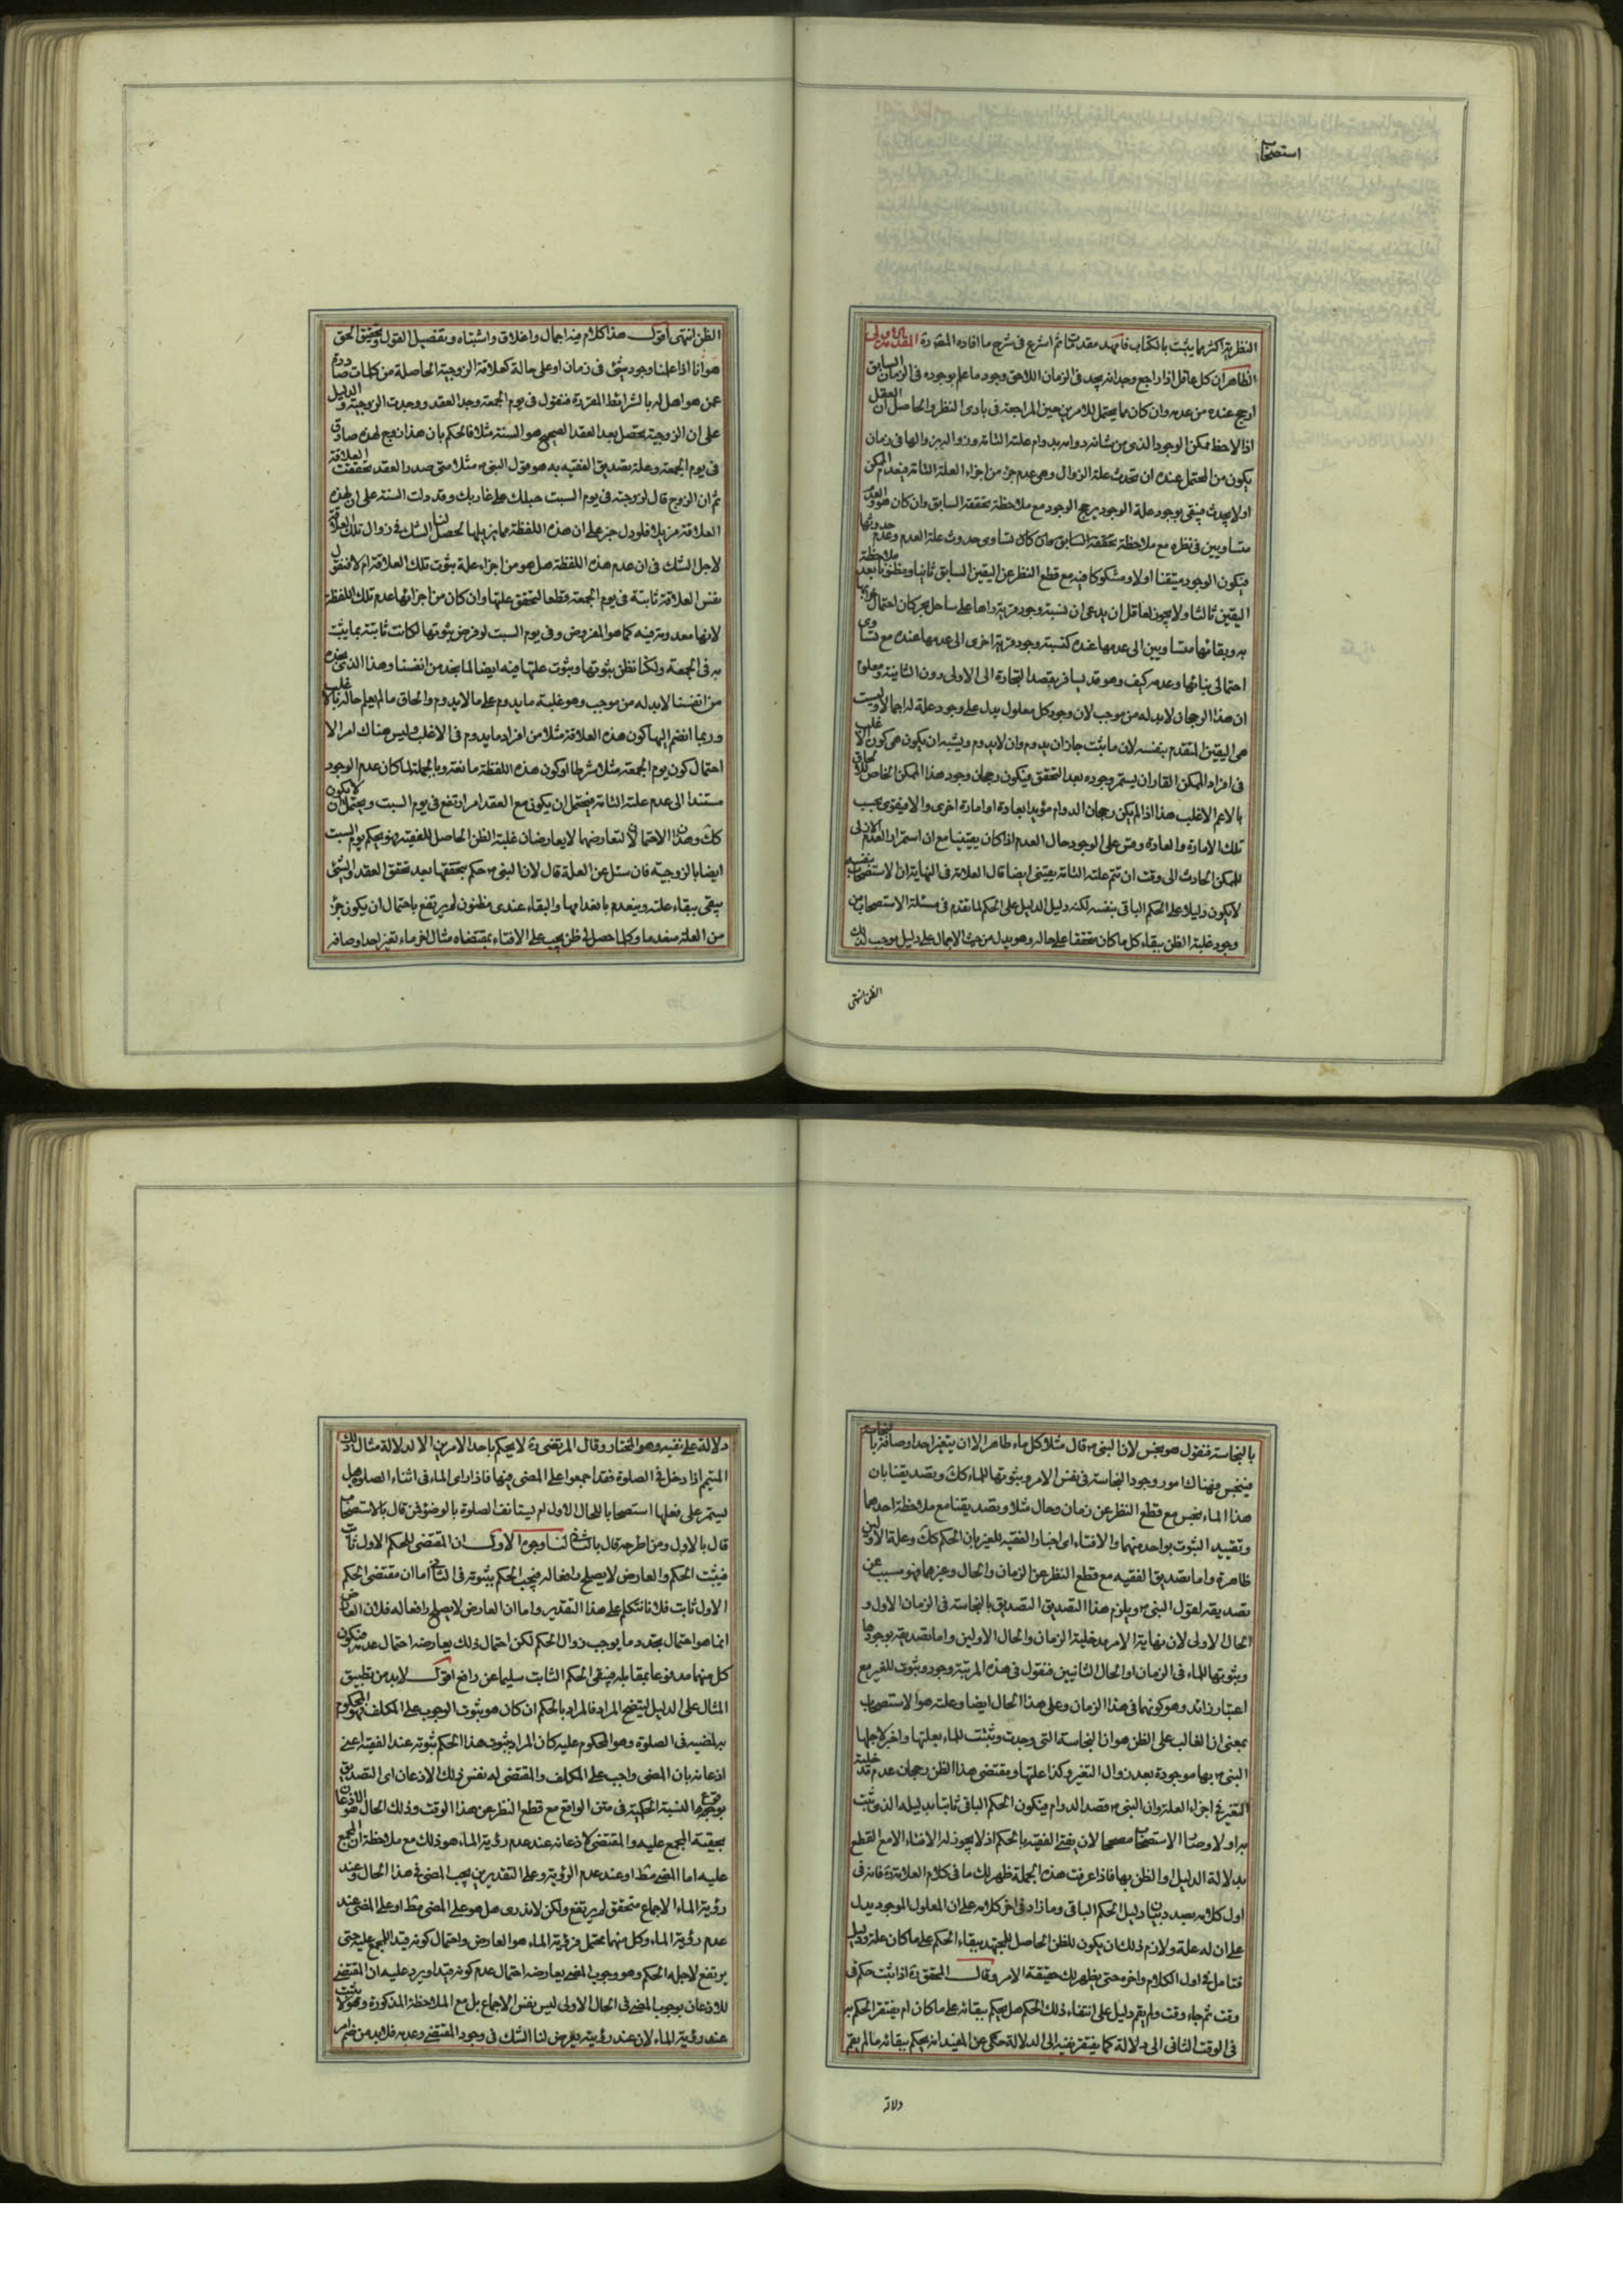 استصحاب
النظرية اكثر مما يثبت بالكتاب فامهد مقدمتا ثم اشرع فى شرح ما افاده المقدمة الاولى
الظاهر ان كل عاقل اذا راجع وجدانه يجد فى الزمان اللاحق وجود ما علم بوجوده فى الزمان السابق
ارجح عنده من عدمه وان كان مما يحتمل للامرين حين المراجعة فى بادى النظر والحاصل ان العقل
اذا لاحظ ممكن الوجود الذى من شانه دوامه بدوام علته التامة وزواله بزوالها فى زمان
يكون من المحتمل عنده ان تحدث علة الزوال وهى عدم جزء من اجزاء العلة التامة فينعدم الممكن
اولا يحدث فيبقى بوجود علة الوجود يرجح الوجود مع ملاحظة تحققه السابق وان كان هو والعدم
متساويين فى نظره مع ملاحظة تحققه السابق كان تساوى حدوث علة العدم وعدم حدوثها
فيكون الوجود متيقنا اولا ومشكوكا فيه مع قطع النظر عن اليقين السابق ثانيا ومظنونا بعد ملاحظة
اليقين ثالثا ولا يجوز لعاقل ان يدعى ان نسبة وجود قرية راها على ساحل بحر كان احتمال
وبقائها متساويين الى عدمها عنده كنسبة وجود قرية اخرى الى عدمها عنده مع تساوى
احتمالى بنائها وعدمه كيف وهو قد يسافر بقصد التجارة الى الاولى دون الثانية ومعلوم
ان هذا الرجحان لابد له من موجب لان وجود كل معلول يدل على وجود علة له اجمالا وليست
هى اليقين المتقدم بنفسه لان ما يثبت جاز ان يدوم وان لا يدوم ويشبه ان يكون هى كون الاغلب
فى افراد الممكن القار ان يستمر وجوده بعد التحقق فيكون رجحان وجود هذا الممكن الخاص للالحاق
بالاعم الاغلب هذا اذا لم يكن رجحان الدوام مؤيدا بعادة او امارة اخرى والا فيقوى بحسب
تلك الامارة والعادة وقس على الوجود حال العدم اذا كان يقينيا مع ان استمرار العدم الازلى
للممكن الحادث الى وقت ان تتم علته التامة يقينى ايضا قال العلامة فى النهاية ان الاستصحاب بنفسه
لا يكون دليلا على الحكم الباقى بنفسه لكنه دليل الدليل على الحكم لما تقدم فى مسئلة الاستصحاب من
وجود غلبة الظن ببقاء كل ما كان متحققا على حاله وهو يدل من حيث الاجمال على دليل موجب لذلك
الظن انتهى
الظن انتهى اقول هذا كلام فيه اجمال واغلاق واشتباه وتفصيل القول وتحقيق الحق
هو انا اذا علمنا وجود شئ فى زمان او على حالة كعلاقة الزوجية الحاصلة من كلمات صادرة
عمن هو اهل له بالشرايط المقررة فنقول فى يوم الجمعة وجد العقد ووجدت الزوجية والدليل
على ان الزوجية يحصل بعد العقد الصحيح هو السنة مثلا فالحكم بان هذا زوج لهذه صادق
فى يوم الجمعة وعلة تصديق الفقيه به هو قول النبى ص مثلا متى صدر العقد تحققت العلاقة
ثم ان الزوج قال لزوجته فى يوم السبت حبلك على غاربك وقد دلت السنة على ان لهذه
العلاقة مزيلا فلو دل خبر على ان هذه اللفظة مما يزيلها لحصل لنا الشك فى زوال تلك العلاقة
لاجل الشك فى ان عدم هذه اللفظة هل هو من اجزاء علة ثبوت تلك العلاقة ام لا فنقول
نفس العلاقة ثابتة فى يوم الجمعة قطعا لتحقق علتها وان كان من اجزائها عدم تلك اللفظة
لانها معدومة فيه كما هو المفروض وفى يوم السبت لو فرض ثبوتها لكانت ثابتة بما يثبت
به فى الجمعة ولكنا نظن ثبوتها وثبوت علتها فيه ايضا لما نجد من انفسنا وهذا الذى نجده
من انفسنا لابد له من موجب وهو غلبة ما يدوم على ما لا يدوم والحاق ما لم يعلم حاله بالاغلب
وربما انضم اليها كون هذه العلاقة مثلا من افراد ما يدوم فى الاغلب وليس هناك امر الا
احتمال كون يوم الجمعة مثلا شرطا او كون هذه اللفظة مانعة وبالجملة لما كان عدم الوجود
مستندا الى عدم علته التامة فيحتمل ان يكون مع العقد امر ارتفع فى يوم السبت ويحتمل ان لا يكون
كك وهذا الاحتمالان لتعارضهما لا يعارضان غلبة الظن الحاصل للفقيه فهو يحكم يوم السبت
ايضا بالزوجية فان سئل عن العلة قال لان النبى ص حكم بتحققها بعد تحقق العقد والشئ
يبقى ببقاء علته وينعدم بانعدامها والبقاء عندى مظنون لم يرتفع باحتمال ان يكون جزء
من العلة منعدما وكلما حصل لى ظن يجب على الافتاء بمقتضاه مثال اخر ماء تغير احد اوصافه
بالنجاسة فنقول هو نجس لان النبى ص قال مثلا كل ماء طاهر الا ان يتغير احد اوصافه بالنجاسة
فينجس فهناك امور وجود النجاسة فى نفس الامر وثبوتها للماء كك وتصديقنا بان
هذا الماء نجس مع قطع النظر عن زمان وحال مثلا وتصديقنا مع ملاحظة احدهما
وتقييد الثبوت بواحد منهما والافتاء اى اخبار الفقيه للغير بان الحكم كك وعلة الاولين
ظاهرة واما تصديق الفقيه مع قطع النظر عن الزمان والحال وغيرهما فهو مسبب عن
تصديقه لقول النبى ص ويلزم هذا التصديق التصديق بالنجاسة فى الزمان الاول و
الحال الاولى لان نهاية الامر مدخلية الزمان والحال الاولين واما تصديقه بوجودها
وثبوتها للماء فى الزمان او الحال الثانيين فنقول فى هذه المرتبة وجود وثبوت للغير مع
اعتبار زائد وهو كونهما فى هذا الزمان وعلى هذا الحال ايضا وعلته هو الاستصحاب
بمعنى ان الغالب على الظن هو ان النجاسة التى وجدت وثبتت للماء بعلتها واخبر لاجلها
النبى ص بها موجودة بعد زوال التغير وكذا علتها ومقتضى هذا الظن رجحان عدم مدخلية
التغير فى اجزاء العلة وان النبى ص قصد الدوام فيكون الحكم الباقى ثابتا بدليله الذى ثبت
به اولا وصار الاستصحاب مصححا لان يفتى الفقيه بالحكم اذ لا يجوز له الافتاء الا مع القطع
بدلالة الدليل او الظن بها فاذا عرفت هذه الجملة ظهر لك ما فى كلام العلامة ره فانه فى
اول كلامه بصدد بيان دليل الحكم الباقى وما زاد فى اخر كلامه على ان المعلول الموجود يدل
على ان له علة ولازم ذلك ان يكون للظن الحاصل للمجتهد ببقاء الحكم على ما كان علة ودليل
فتامل فى اول الكلام واخره حتى يظهر لك حقيقة الامر وقال المحقق ره اذا ثبت حكم فى
وقت ثم جاء وقت ولم يقم دليل على انتفاء ذلك الحكم هل يحكم ببقائه على ما كان ام يفتقر الحكم به
فى الوقت الثانى الى دلالة كما يفتقر نفيه الى الدلالة حكى عن المفيد انه يحكم ببقائه ما لم يقم
دلالة
دلالة على نفيه وهو المختار وقال المرتضى ره لا يحكم باحد الامرين الا لدلالة مثال ذلك
المتيمم اذا دخل فى الصلوة فقد اجمعوا على المضى فيها فاذا راى الماء فى اثناء الصلوة هل
يستمر على فعلها استصحابا للحال الاول ام يستانف الصلوة بالوضوء فمن قال بالاستصحاب
قال بالاول ومن اطرحه قال بالثانى لنا وجوه الاول ان المقتضى للحكم الاول ثابت
فيثبت الحكم والعارض لا يصلح رافعا له فيجب الحكم بثبوته فى الثانى اما ان مقتضى الحكم
الاول ثابت فلانا نتكلم على هذا التقدير واما ان العارض لا يصلح رافعا له فلان العارض
انما هو احتمال تجدد ما يوجب زوال الحكم لكن احتمال ذلك يعارضه احتمال عدمه فيكون
كل منهما مدفوعا بمقابله فيبقى الحكم الثابت سليما عن رافع اقول لابد من تطبيق
المثال على الدليل ليتضح المراد فالمراد بالحكم ان كان هو ثبوت الوجوب على المكلف فهو المحكوم
به المضيه فى الصلوة وهو المحكوم عليه كان المراد بثبوت هذا الحكم ثبوته عند الفقيه اعنى
اذعانه بان المضى واجب على المكلف والمقتضى له نفس ذلك الاذعان اى التصديق
بوقوع النسبة الحكمية فى متن الواقع مع قطع النظر عن هذا الوقت وذلك الحال هو الاذعان
بحقية المجمع عليه والمقتضى لاذعانه عند عدم رؤية الماء هو ذلك مع ملاحظة ان المجمع
عليه اما المضى مط او عند عدم الرؤية وعلى التقديرين يجب المضى فى هذا الحال وعند
رؤية الماء الاجماع متحقق لم يرتفع ولكن لا ندرى هل هو على المضى مط او على المضى عند
عدم رؤية الماء وكل منهما محتمل فرؤية الماء هو العارض واحتمال كونه قيدا للمجمع عليه حتى
يرتفع لاجله الحكم وهو وجوب المضى يعارضه احتمال عدم كونه قيدا ويرد عليه ان المقتضى
للاذعان بوجوب المضى فى الحال الاولى ليس نفس الاجماع بل مع الملاحظة المذكورة وهو لا يثبت
عند رؤية الماء لان عند رؤيته يعرض لنا الشك فى وجود المقتضى وعدمه فلابد من ضم امر